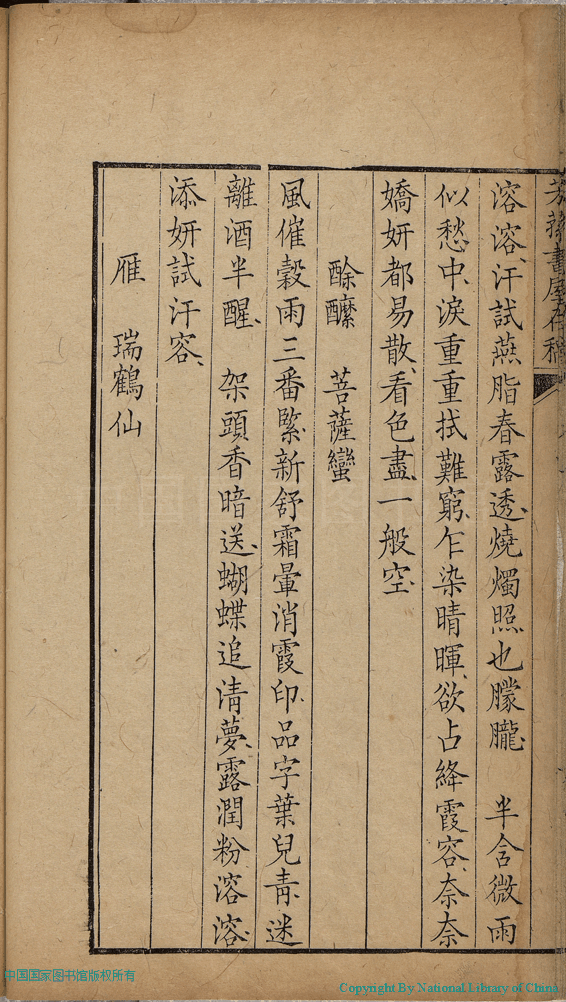 書屋存稿
溶溶、汗試燕脂春露透、燒燭照也朦朧、　半含微雨
似愁中、淚重重拭難窮、乍染晴暉、欲占絳霞容、奈奈
嬌妍都易散、看色盡、一般空、
酴醾　菩薩蠻
風催穀雨三番緊、新舒霜暈消霞印、品字葉兒青、迷
離酒半醒、　架頭香暗送、蝴蝶追清夢、露潤粉溶溶、
添妍試汗容、
雁　瑞鶴仙
中国国家图书馆版权所有
Copyright By National Library of China